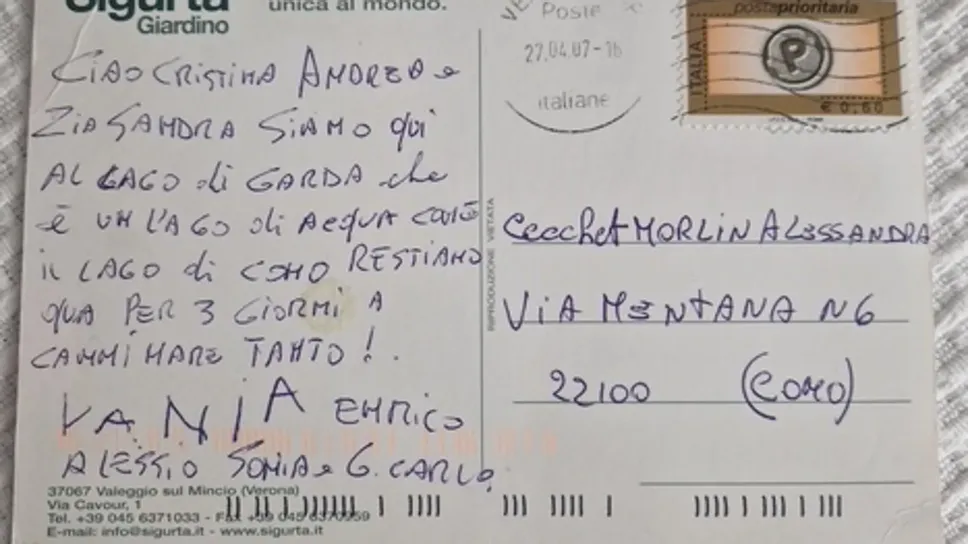 Sigurtà
Giardino
unica al mondo.
Poste
27.04.07-16
italiane
postaprioritaria
ITALIA
P
€ 0,60
CIAO CRISTINA ANDREA e
ZIA SANDRA SIAMO qui
AL LAGO di GARDA che
è UN L'AGO di ACQUA COME
il LAGO di COMO RESTIAMO
QUA PER 3 GIORNI A
CAMMINARE TANTO!.
VANIA ENRICO
ALESSIO SONIA e G. CARLO
RIPRODUZIONE VIETATA
Cecchet MORLIN ALESSANDRA
VIA MENTANA N 6
22100 (COMO)
37067 Valeggio sul Mincio (Verona)
Via Cavour, 1
Tel. +39 045 6371033 - Fax +39 045 6370959
E-mail: info@sigurta.it - www.sigurta.it